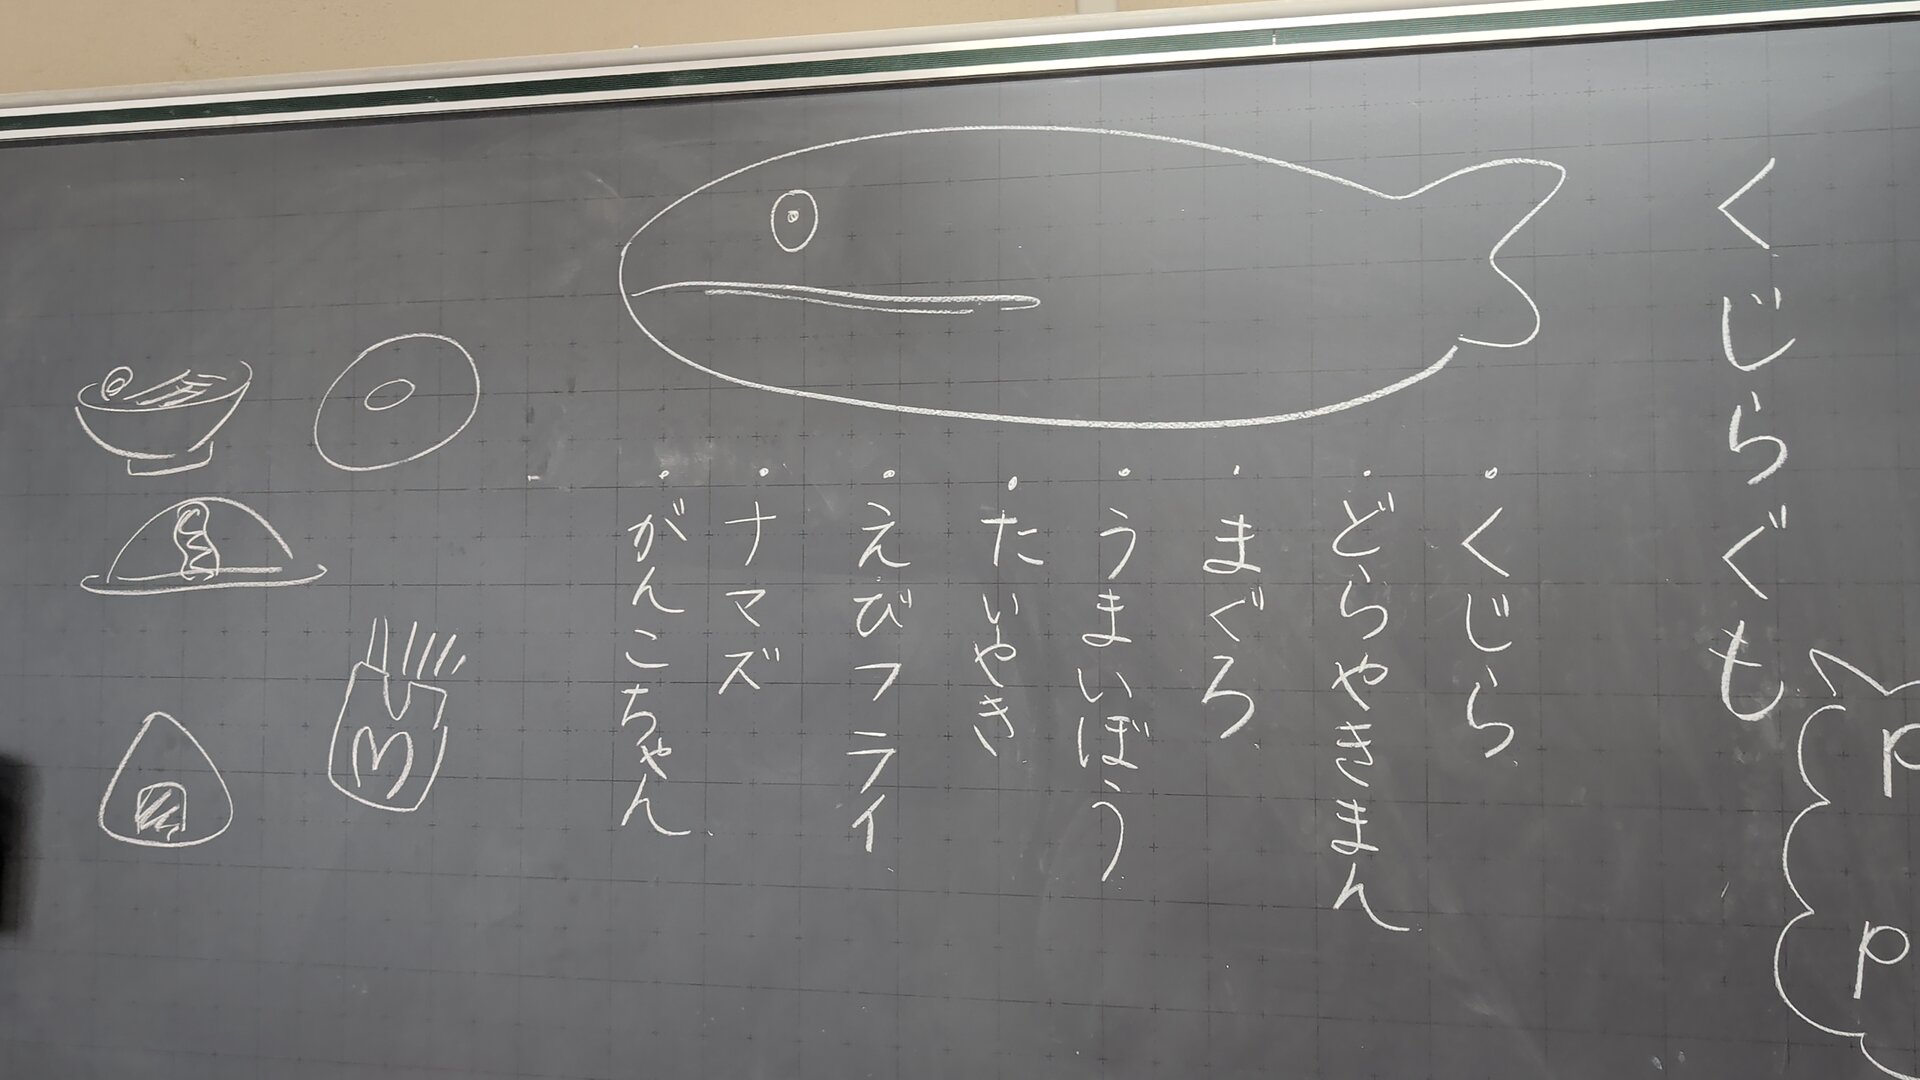 くじらぐも
・くじら
・どらやきまん
・まぐろ
・うまいぼう
・たいやき
・えびフライ
・ナマズ
・がんこちゃん
M
P
P